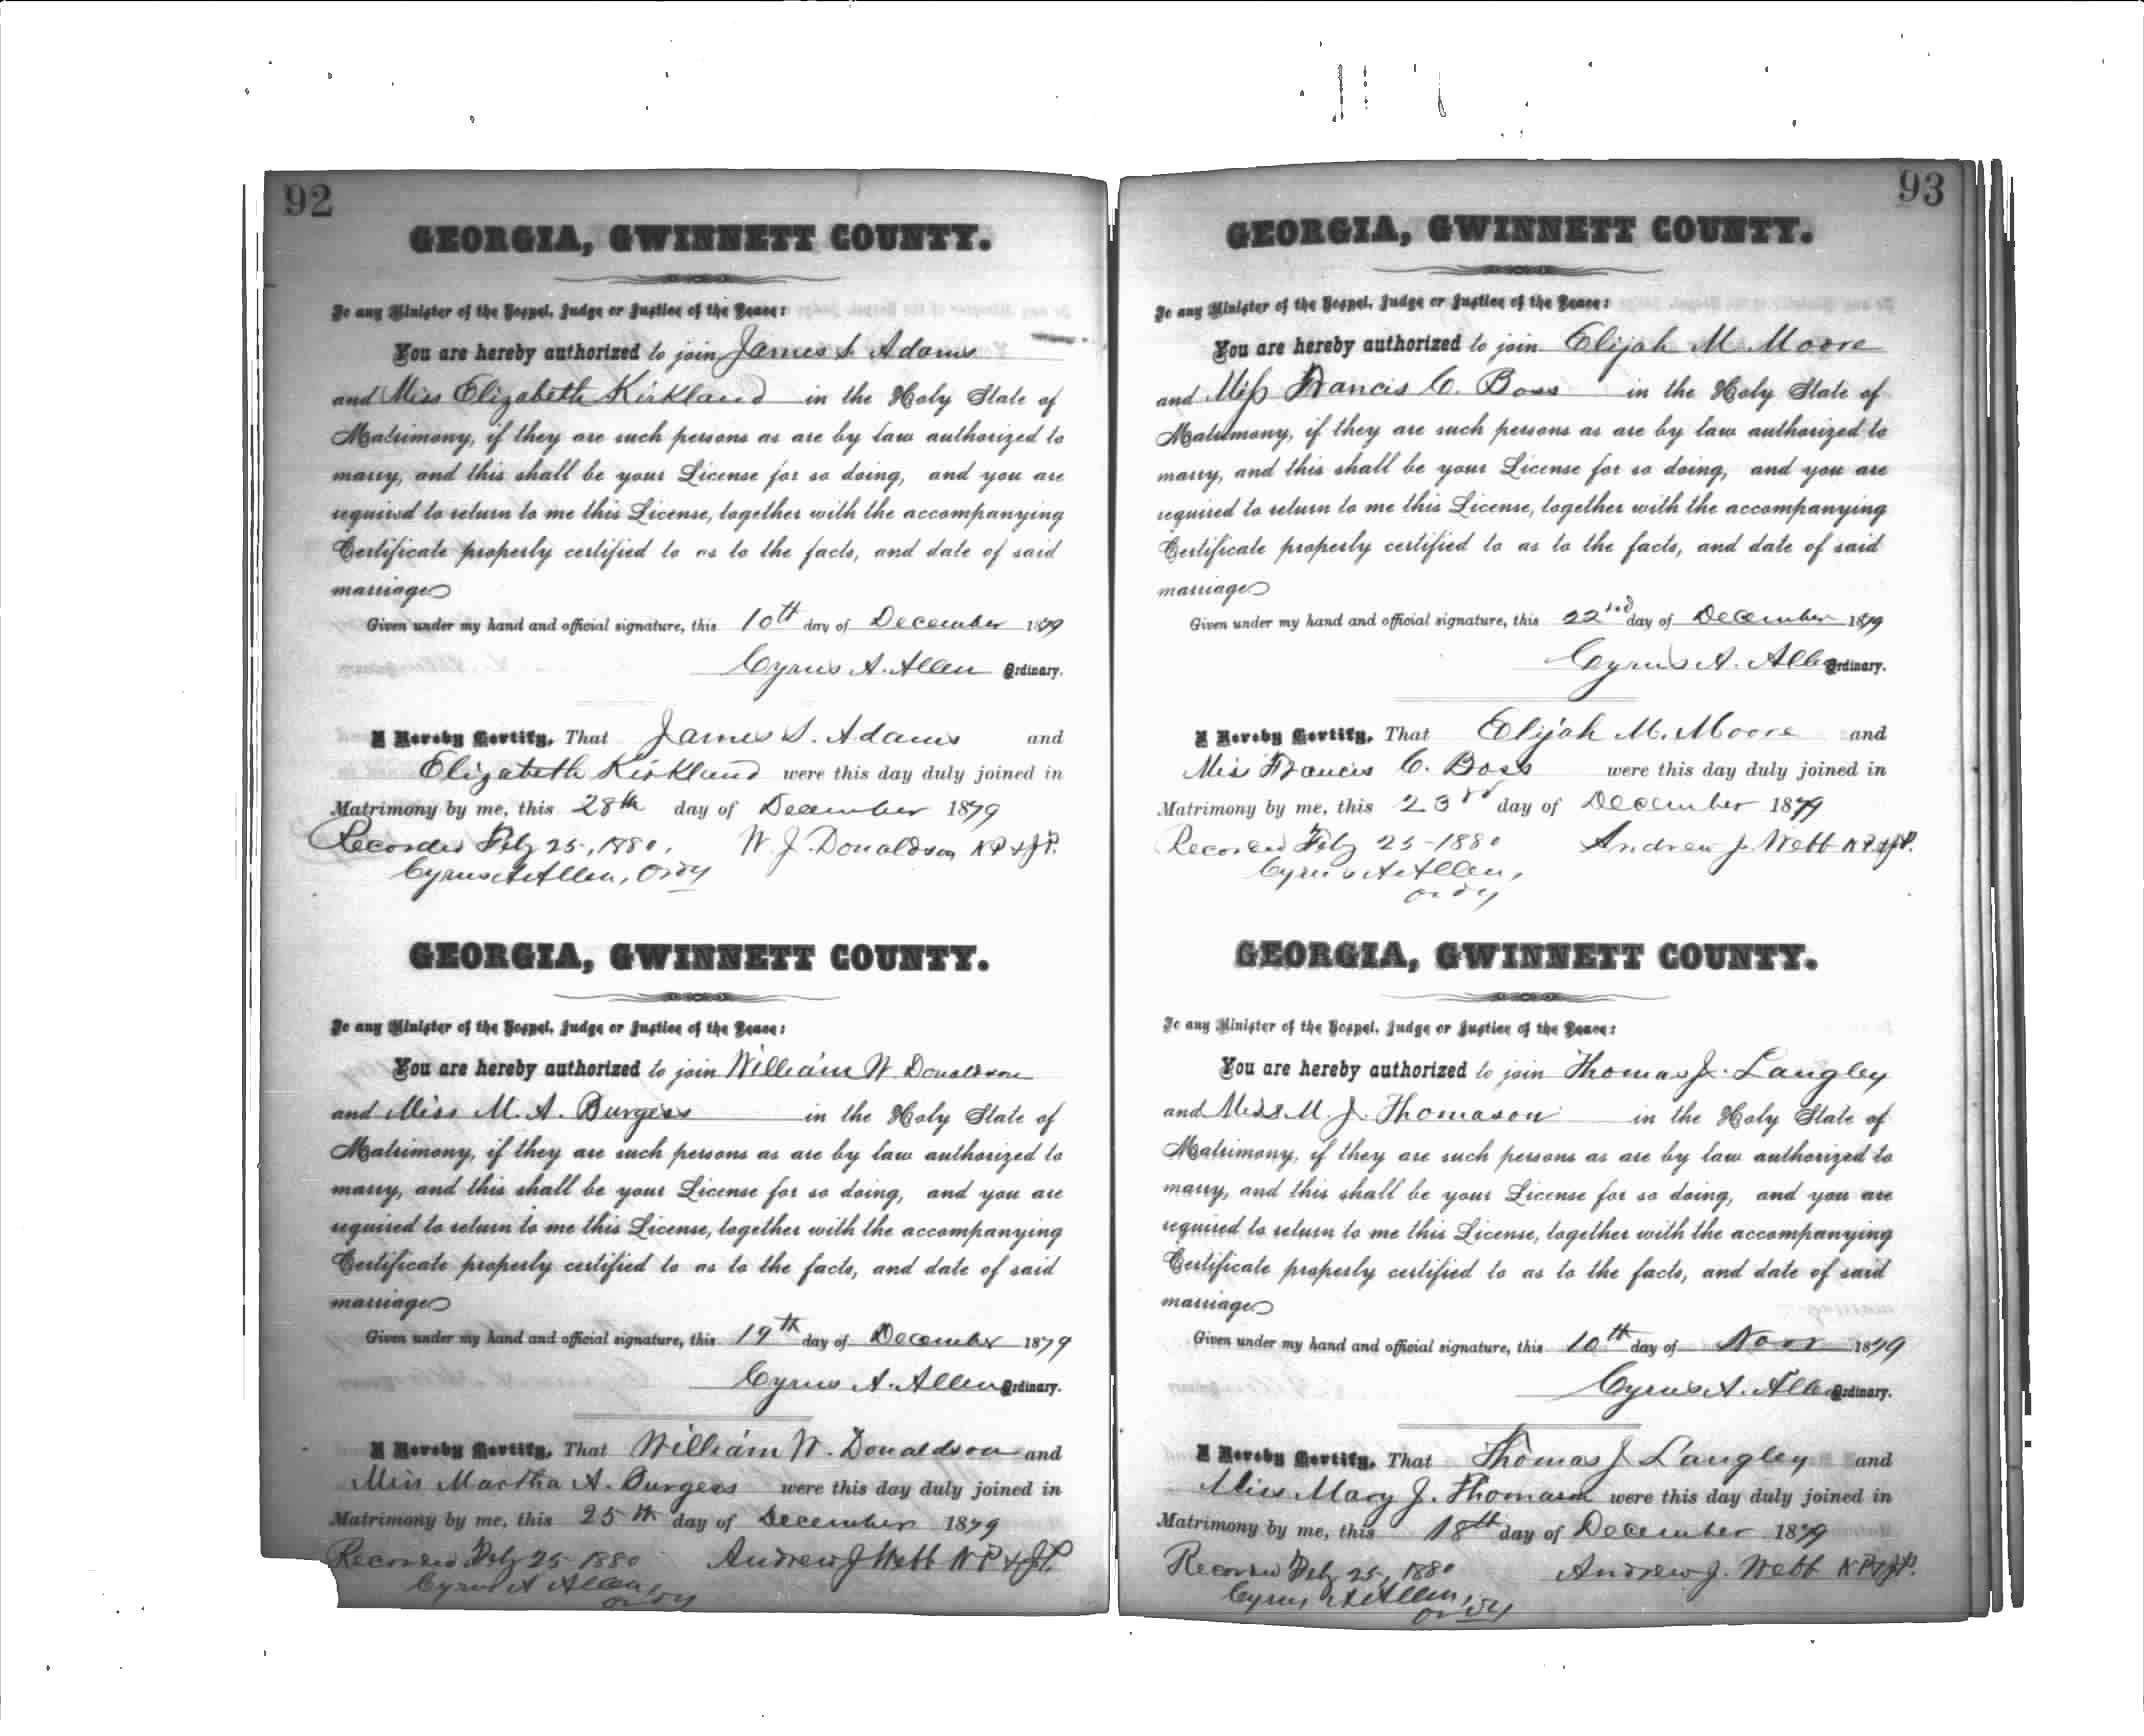 92
GEORGIA, GWINNETT COUNTY.
To any Minister of the Gospel, Judge or Justice of the Peace:
You are hereby authorized to join James S. Adams
and Miss Elizabeth Kirkland in the Holy State of
Matrimony, if they are such persons as are by law authorized to
marry, and this shall be your License for so doing, and you are
required to return to me this License, together with the accompanying
Certificate properly certified to as to the facts, and date of said
marriage
Given under my hand and official signature, this 10th day of December 1879
Cyrus A. Allen Ordinary.
I Hereby Certify, That James S. Adams and
Elizabeth Kirkland were this day duly joined in
Matrimony by me, this 28th day of December 1879
Recorded Feby 25, 1880. W. J. Donaldson N P & J P.
Cyrus A. Allen, Ordy
GEORGIA, GWINNETT COUNTY.
To any Minister of the Gospel, Judge or Justice of the Peace:
You are hereby authorized to join William W. Donaldson
and Miss M. A. Burgess in the Holy State of
Matrimony, if they are such persons as are by law authorized to
marry, and this shall be your License for so doing, and you are
required to return to me this License, together with the accompanying
Certificate properly certified to as to the facts, and date of said
marriage
Given under my hand and official signature, this 19th day of December 1879
Cyrus A. Allen Ordinary.
I Hereby Certify, That William W. Donaldson and
Miss Martha A. Burgess were this day duly joined in
Matrimony by me, this 25th day of December 1879
Recorded Feby 25 1880 Andrew J Webb N P & J P.
Cyrus A Allen,
ordy
93
GEORGIA, GWINNETT COUNTY.
To any Minister of the Gospel, Judge or Justice of the Peace:
You are hereby authorized to join Elijah M. Moore
and Miss Francis C. Boss in the Holy State of
Matrimony, if they are such persons as are by law authorized to
marry, and this shall be your License for so doing, and you are
required to return to me this License, together with the accompanying
Certificate properly certified to as to the facts, and date of said
marriage
Given under my hand and official signature, this 22nd day of December 1879
Cyrus A. Allen Ordinary.
I Hereby Certify, That Elijah M. Moore and
Miss Francis C. Boss were this day duly joined in
Matrimony by me, this 23rd day of December 1879
Recorded Feby 25-1880 Andrew J. Webb N P & J P.
Cyrus A. Allen,
ordy
GEORGIA, GWINNETT COUNTY.
To any Minister of the Gospel, Judge or Justice of the Peace:
You are hereby authorized to join Thomas J. Langley
and Miss M. J. Thomason in the Holy State of
Matrimony, if they are such persons as are by law authorized to
marry, and this shall be your License for so doing, and you are
required to return to me this License, together with the accompanying
Certificate properly certified to as to the facts, and date of said
marriage
Given under my hand and official signature, this 10th day of Novr 1879
Cyrus A. Allen Ordinary.
I Hereby Certify, That Thomas J Langley and
Miss Mary J. Thomason were this day duly joined in
Matrimony by me, this 18th day of December 1879
Recorded Feby 25, 1880 Andrew J. Webb N P & J P.
Cyrus A. Allen,
ordy